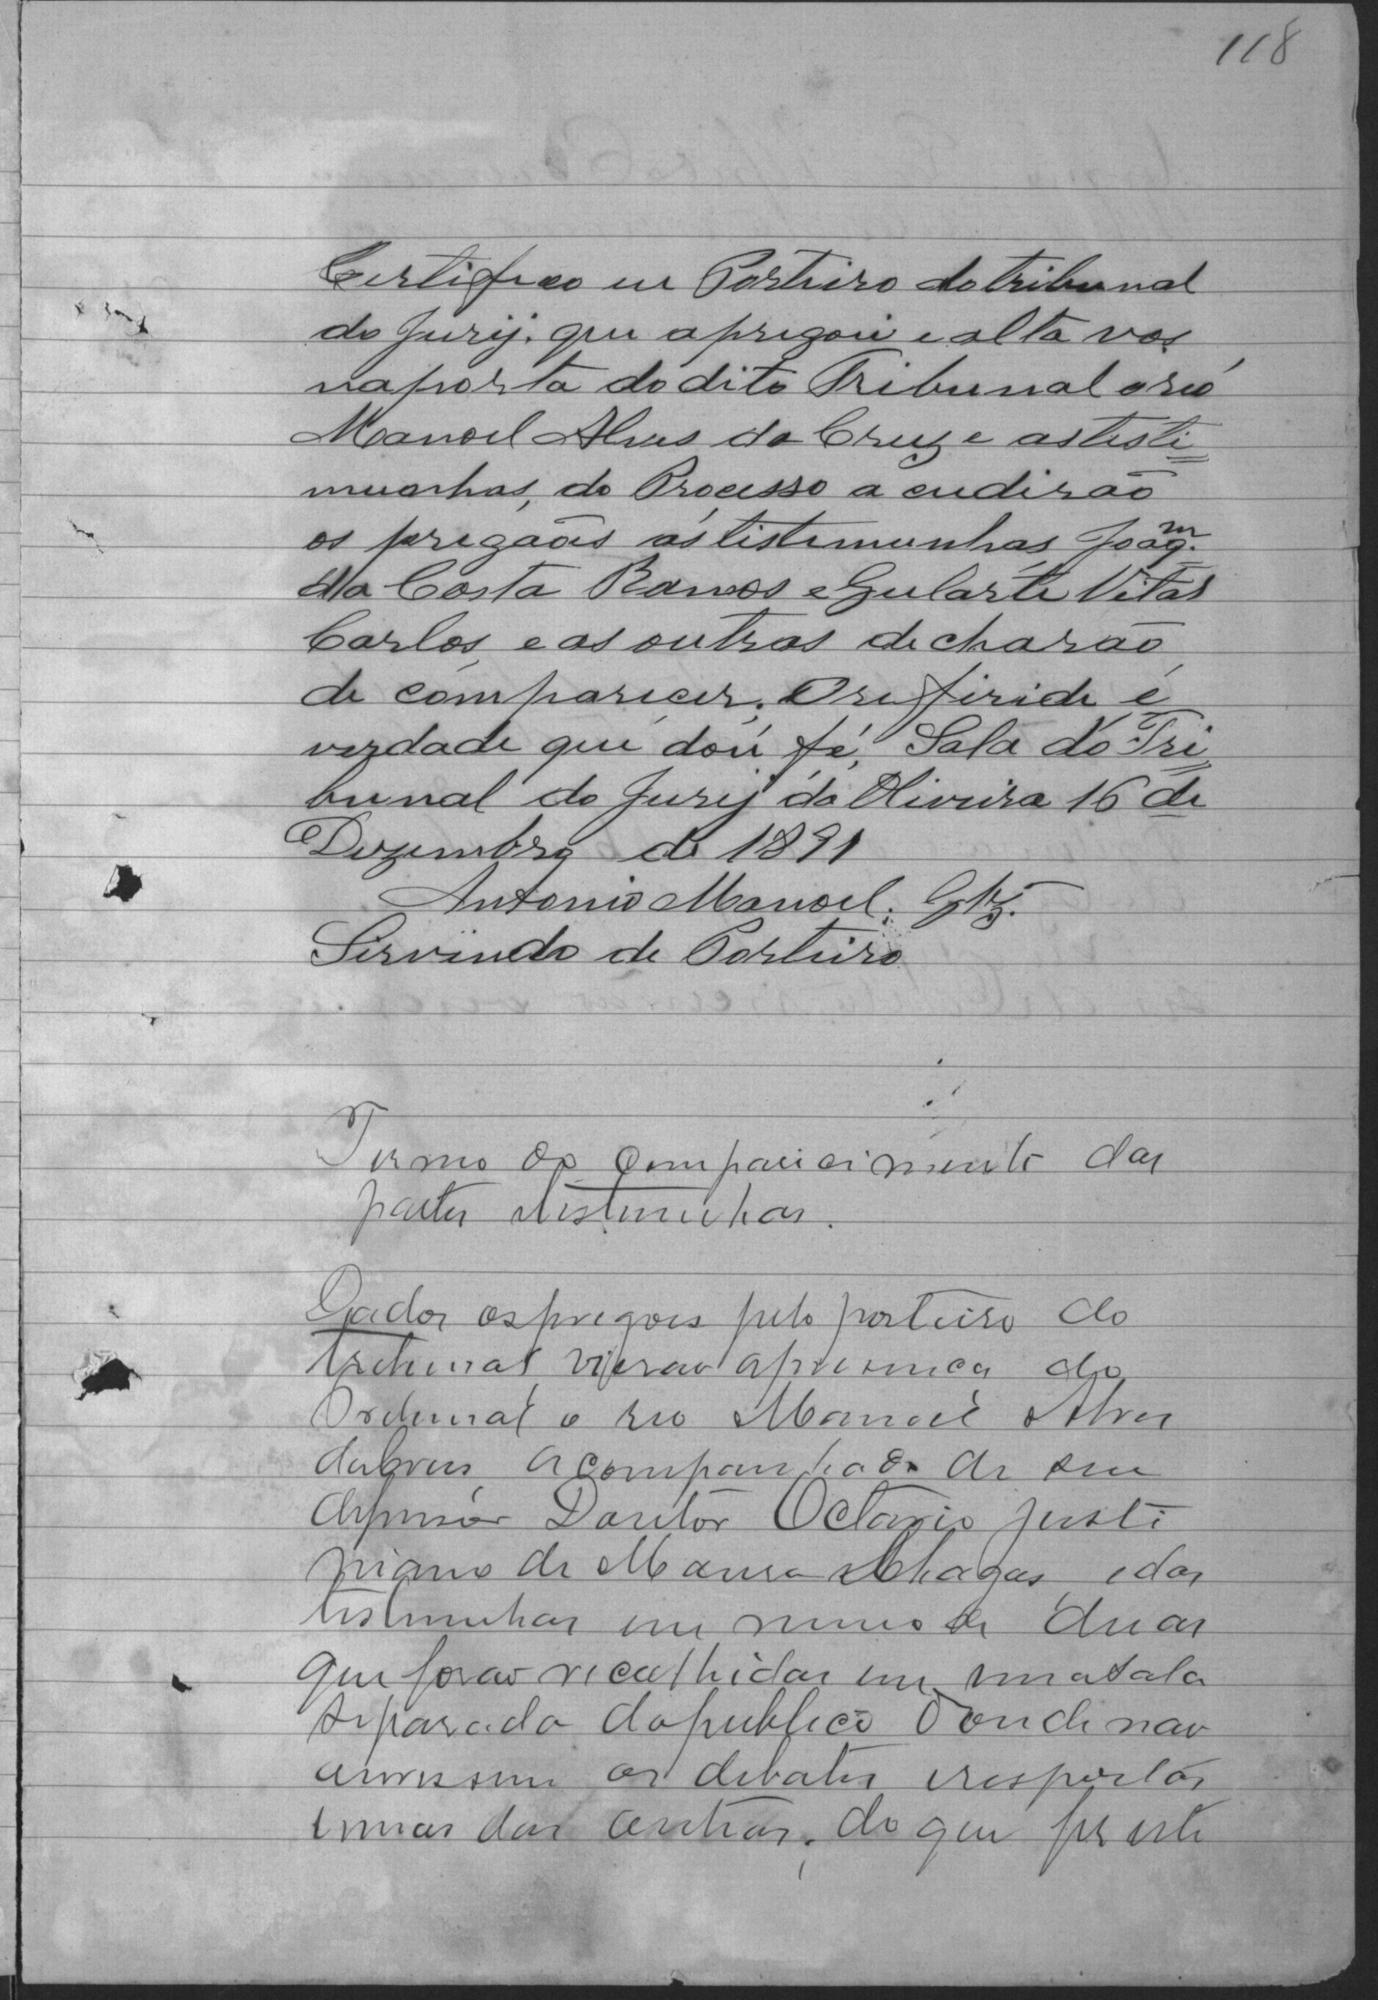 118
Certifico eu Porteiro do tribunal
do Jury. que apregoei e alta vos
na porta do dito Tribunal o reo
Manoel Alves da Cruz e as testi
munhas, do Processo a cudirão
os pregãois as tistimunhas, Joaqm.
da Costa Ramos e Gularte Vital
Carlos, e as outras decharão
de comparecer. O refiride é
verdade que dou fé, Sala do Tri
bunal do Jury da Oliveira 16 de
Dezembro de 1891
Antonio Manoel. Glz.
Servindo de Porteiro
Termo de Comparicimento das
partes e testimunhas.
Dados os pregois pelo porteiro do
tribunal, vierão a presença do
tribunal o reo Manoel Alves
da Cruz, acompanhado de seu
defensor Doutor Octavio Justi
niano de Moura e Chagas, e das
testimunhas em numero de duas
que forão recolhidas em uma sala
separada do publico donde não
ouvissem os debates e respostas
umas das outras, do que fis este